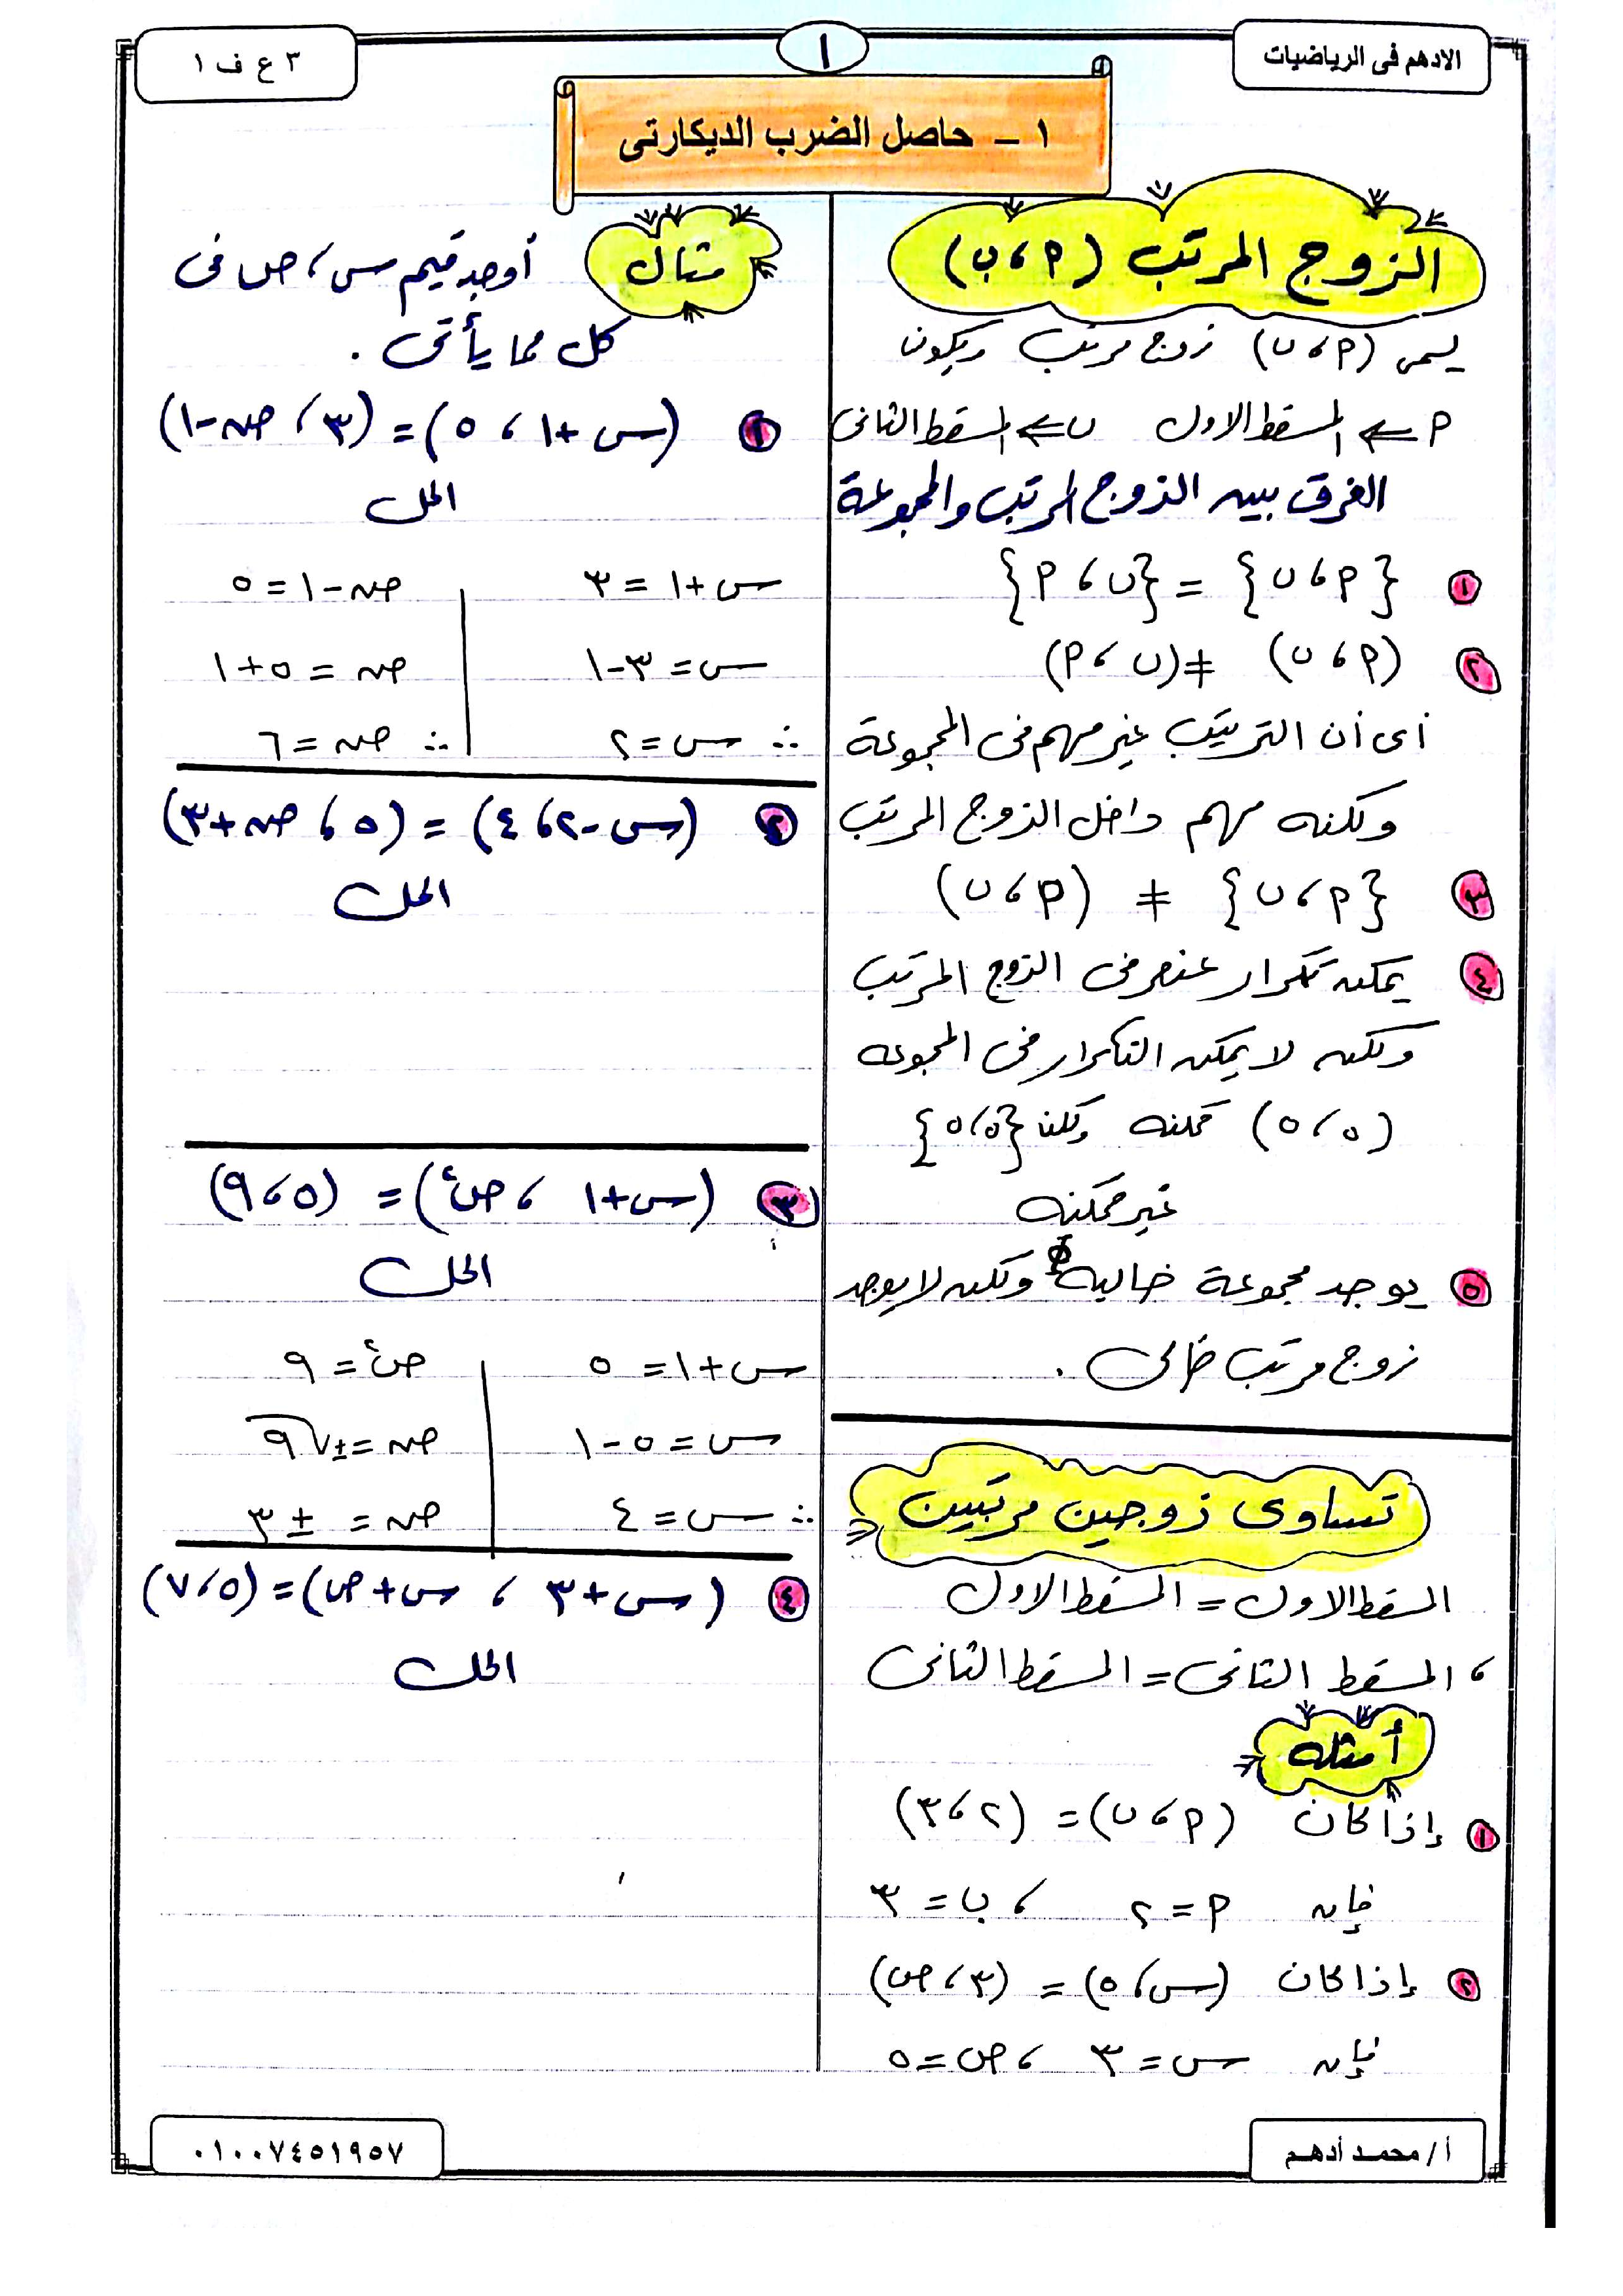 الادهم فى الرياضيات
١
٣ ع ف ١
١ - حاصل الضرب الديكارتى
الزوج المرتب (أ ، ب)
يسمى (أ ، ب) زوج مرتب ويكون
أ ⇐ المسقط الاول ب ⇐ المسقط الثانى
الفرق بين الزوج المرتب والمجموعة
١ {أ ، ب} = {ب ، أ}
٢ (أ ، ب) ≠ (ب ، أ)
أى أن الترتيب غير مهم فى المجموعة
ولكنه مهم داخل الزوج المرتب
٣ {أ ، ب} ≠ (أ ، ب)
٤ يمكن تكرار عنصر فى الزوج المرتب
ولكن لا يمكن التكرار فى المجموعه
(٥ ، ٥) ممكنه ولكن {٥ ، ٥}
غير ممكنه
٥ يوجد مجموعة خاليه ϕ ولكن لا يوجد
زوج مرتب خالى .
تساوى زوجين مرتبين
المسقط الاول = المسقط الاول
، المسقط الثانى = المسقط الثانى
أمثله
١ إذا كان (أ ، ب) = (٢ ، ٣)
فإن أ = ٢ ، ب = ٣
٢ إذا كان (س ، ٥) = (٣ ، ص)
فإن س = ٣ ، ص = ٥
مثال أوجد قيم س ، ص فى
كل مما يأتى .
١ (س + ١ ، ٥) = (٣ ، ص - ١)
الحل
س + ١ = ٣ | ص - ١ = ٥
س = ٣ - ١ | ص = ٥ + ١
∴ س = ٢ | ∴ ص = ٦
٢ (س - ٢ ، ٤) = (٥ ، ص + ٣)
الحل
٣ (س + ١ ، ص٢) = (٥ ، ٩)
الحل
س + ١ = ٥ | ص٢ = ٩
س = ٥ - ١ | ص = ± √٩
∴ س = ٤ | ص = ± ٣
٤ (س + ٣ ، س + ص) = (٥ ، ٧)
الحل
أ / محمد أدهم
٠١٠٠٧٤٥١٩٥٧